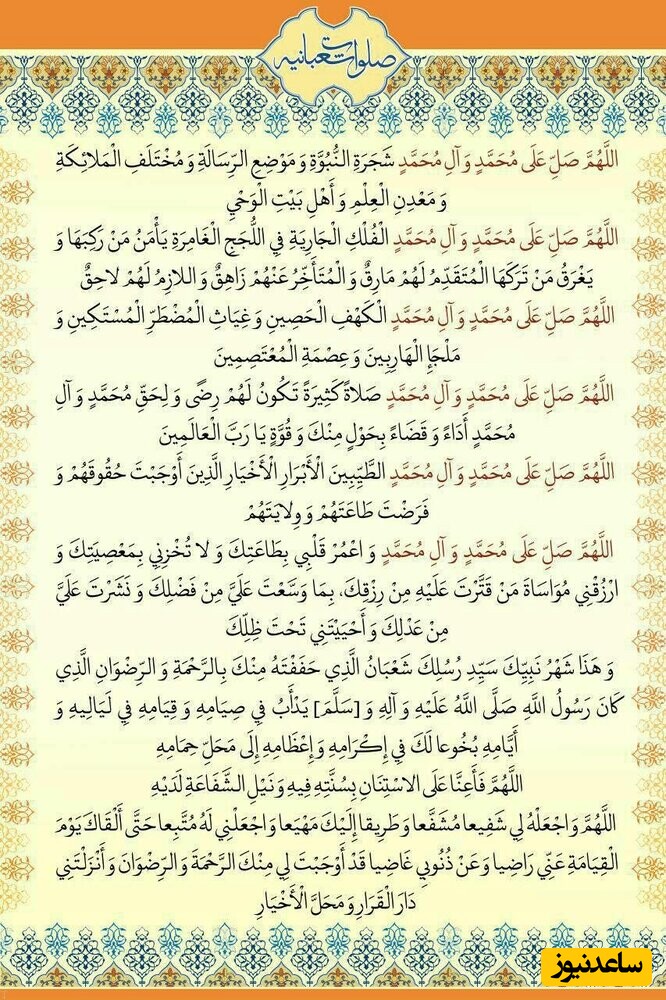 صلوات شعبانیه
اللَّهُمَّ صَلِّ عَلَى مُحَمَّدٍ وَ آلِ مُحَمَّدٍ شَجَرَةِ النُّبُوَّةِ وَ مَوْضِعِ الرِّسَالَةِ وَ مُخْتَلَفِ الْمَلائِكَةِ
وَ مَعْدِنِ الْعِلْمِ وَ أَهْلِ بَيْتِ الْوَحْيِ
اللَّهُمَّ صَلِّ عَلَى مُحَمَّدٍ وَ آلِ مُحَمَّدٍ الْفُلْكِ الْجَارِيَةِ فِي اللُّجَجِ الْغَامِرَةِ يَأْمَنُ مَنْ رَكِبَهَا وَ
يَغْرَقُ مَنْ تَرَكَهَا الْمُتَقَدِّمُ لَهُمْ مَارِقٌ وَ الْمُتَأَخِّرُ عَنْهُمْ زَاهِقٌ وَ اللازِمُ لَهُمْ لاحِقٌ
اللَّهُمَّ صَلِّ عَلَى مُحَمَّدٍ وَ آلِ مُحَمَّدٍ الْكَهْفِ الْحَصِينِ وَ غِيَاثِ الْمُضْطَرِّ الْمُسْتَكِينِ وَ
مَلْجَإِ الْهَارِبِينَ وَ عِصْمَةِ الْمُعْتَصِمِينَ
اللَّهُمَّ صَلِّ عَلَى مُحَمَّدٍ وَ آلِ مُحَمَّدٍ صَلاةً كَثِيرَةً تَكُونُ لَهُمْ رِضًى وَ لِحَقِّ مُحَمَّدٍ وَ آلِ
مُحَمَّدٍ أَدَاءً وَ قَضَاءً بِحَوْلٍ مِنْكَ وَ قُوَّةٍ يَا رَبَّ الْعَالَمِينَ
اللَّهُمَّ صَلِّ عَلَى مُحَمَّدٍ وَ آلِ مُحَمَّدٍ الطَّيِّبِينَ الْأَبْرَارِ الْأَخْيَارِ الَّذِينَ أَوْجَبْتَ حُقُوقَهُمْ وَ
فَرَضْتَ طَاعَتَهُمْ وَ وِلايَتَهُمْ
اللَّهُمَّ صَلِّ عَلَى مُحَمَّدٍ وَ آلِ مُحَمَّدٍ وَ اعْمُرْ قَلْبِي بِطَاعَتِكَ وَ لا تُخْزِنِي بِمَعْصِيَتِكَ وَ
ارْزُقْنِي مُوَاسَاةَ مَنْ قَتَّرْتَ عَلَيْهِ مِنْ رِزْقِكَ، بِمَا وَسَّعْتَ عَلَيَّ مِنْ فَضْلِكَ وَ نَشَرْتَ عَلَيَّ
مِنْ عَدْلِكَ وَ أَحْيَيْتَنِي تَحْتَ ظِلِّكَ
وَ هَذَا شَهْرُ نَبِيِّكَ سَيِّدِ رُسُلِكَ شَعْبَانُ الَّذِي حَفَفْتَهُ مِنْكَ بِالرَّحْمَةِ وَ الرِّضْوَانِ الَّذِي
كَانَ رَسُولُ اللَّهِ صَلَّى اللَّهُ عَلَيْهِ وَ آلِهِ وَ [سَلَّمَ] يَدْأَبُ فِي صِيَامِهِ وَ قِيَامِهِ فِي لَيَالِيهِ وَ
أَيَّامِهِ بُخُوعا لَكَ فِي إِكْرَامِهِ وَ إِعْظَامِهِ إِلَى مَحَلِّ حِمَامِهِ
اللَّهُمَّ فَأَعِنَّا عَلَى الاسْتِنَانِ بِسُنَّتِهِ فِيهِ وَ نَيْلِ الشَّفَاعَةِ لَدَيْهِ
اللَّهُمَّ وَ اجْعَلْهُ لِي شَفِيعا مُشَفَّعا وَ طَرِيقا إِلَيْكَ مَهْيَعا وَ اجْعَلْنِي لَهُ مُتَّبِعا حَتَّى أَلْقَاكَ يَوْمَ
الْقِيَامَةِ عَنِّي رَاضِيا وَ عَنْ ذُنُوبِي غَاضِيا قَدْ أَوْجَبْتَ لِي مِنْكَ الرَّحْمَةَ وَ الرِّضْوَانَ وَ أَنْزَلْتَنِي
دَارَ الْقَرَارِ وَ مَحَلَّ الْأَخْيَارِ
ساعدنیوز